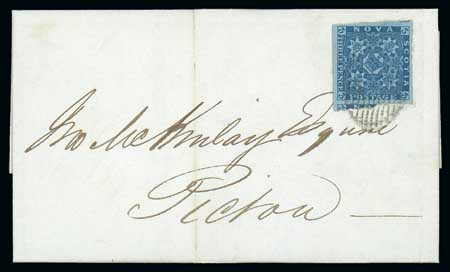 NOVA
SCOTIA
THREE PENCE
POSTAGE
Jno McKinlay Esquire
Pictou